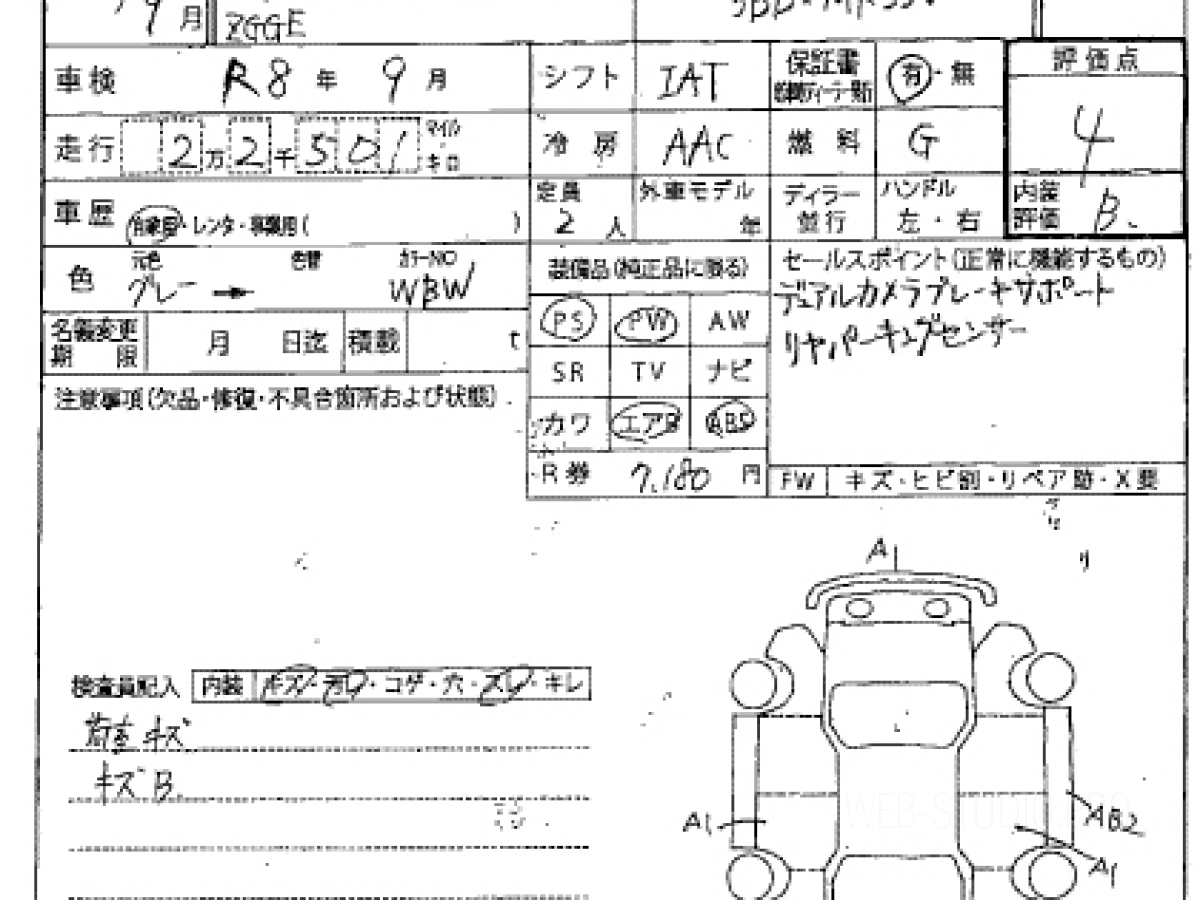 9月
ZGGE
車検 R8年 9月 シフト IAT 保証書 有・無 評価点
走行 2万2千501 マイル キロ 冷房 AAC 燃料 G 4
車歴 自家用・レンタ・事業用( ) 定員 2人 外車モデル 年 ディラー 並行 ハンドル 左・右 内装評価 B.
色 元色 グレー → 色替 カラーNO WBW 装備品(純正品に限る) セールスポイント(正常に機能するもの)
デュアルカメラブレーキサポート
リヤパーキングセンサー
名義変更期限 月 日迄 積載 t PS PW AW
SR TV ナビ
注意事項(欠品・修復・不具合箇所および状態) カワ エアB ABS
R券 7,180円 FW キズ・ヒビ割・リペア跡・X要
A1
検査員記入 内装 キズ・汚レ・コゲ・穴・スレ・キレ
荷室キズ
キズB.
WEB-STUDIO.PRO
A1 AB2
A1